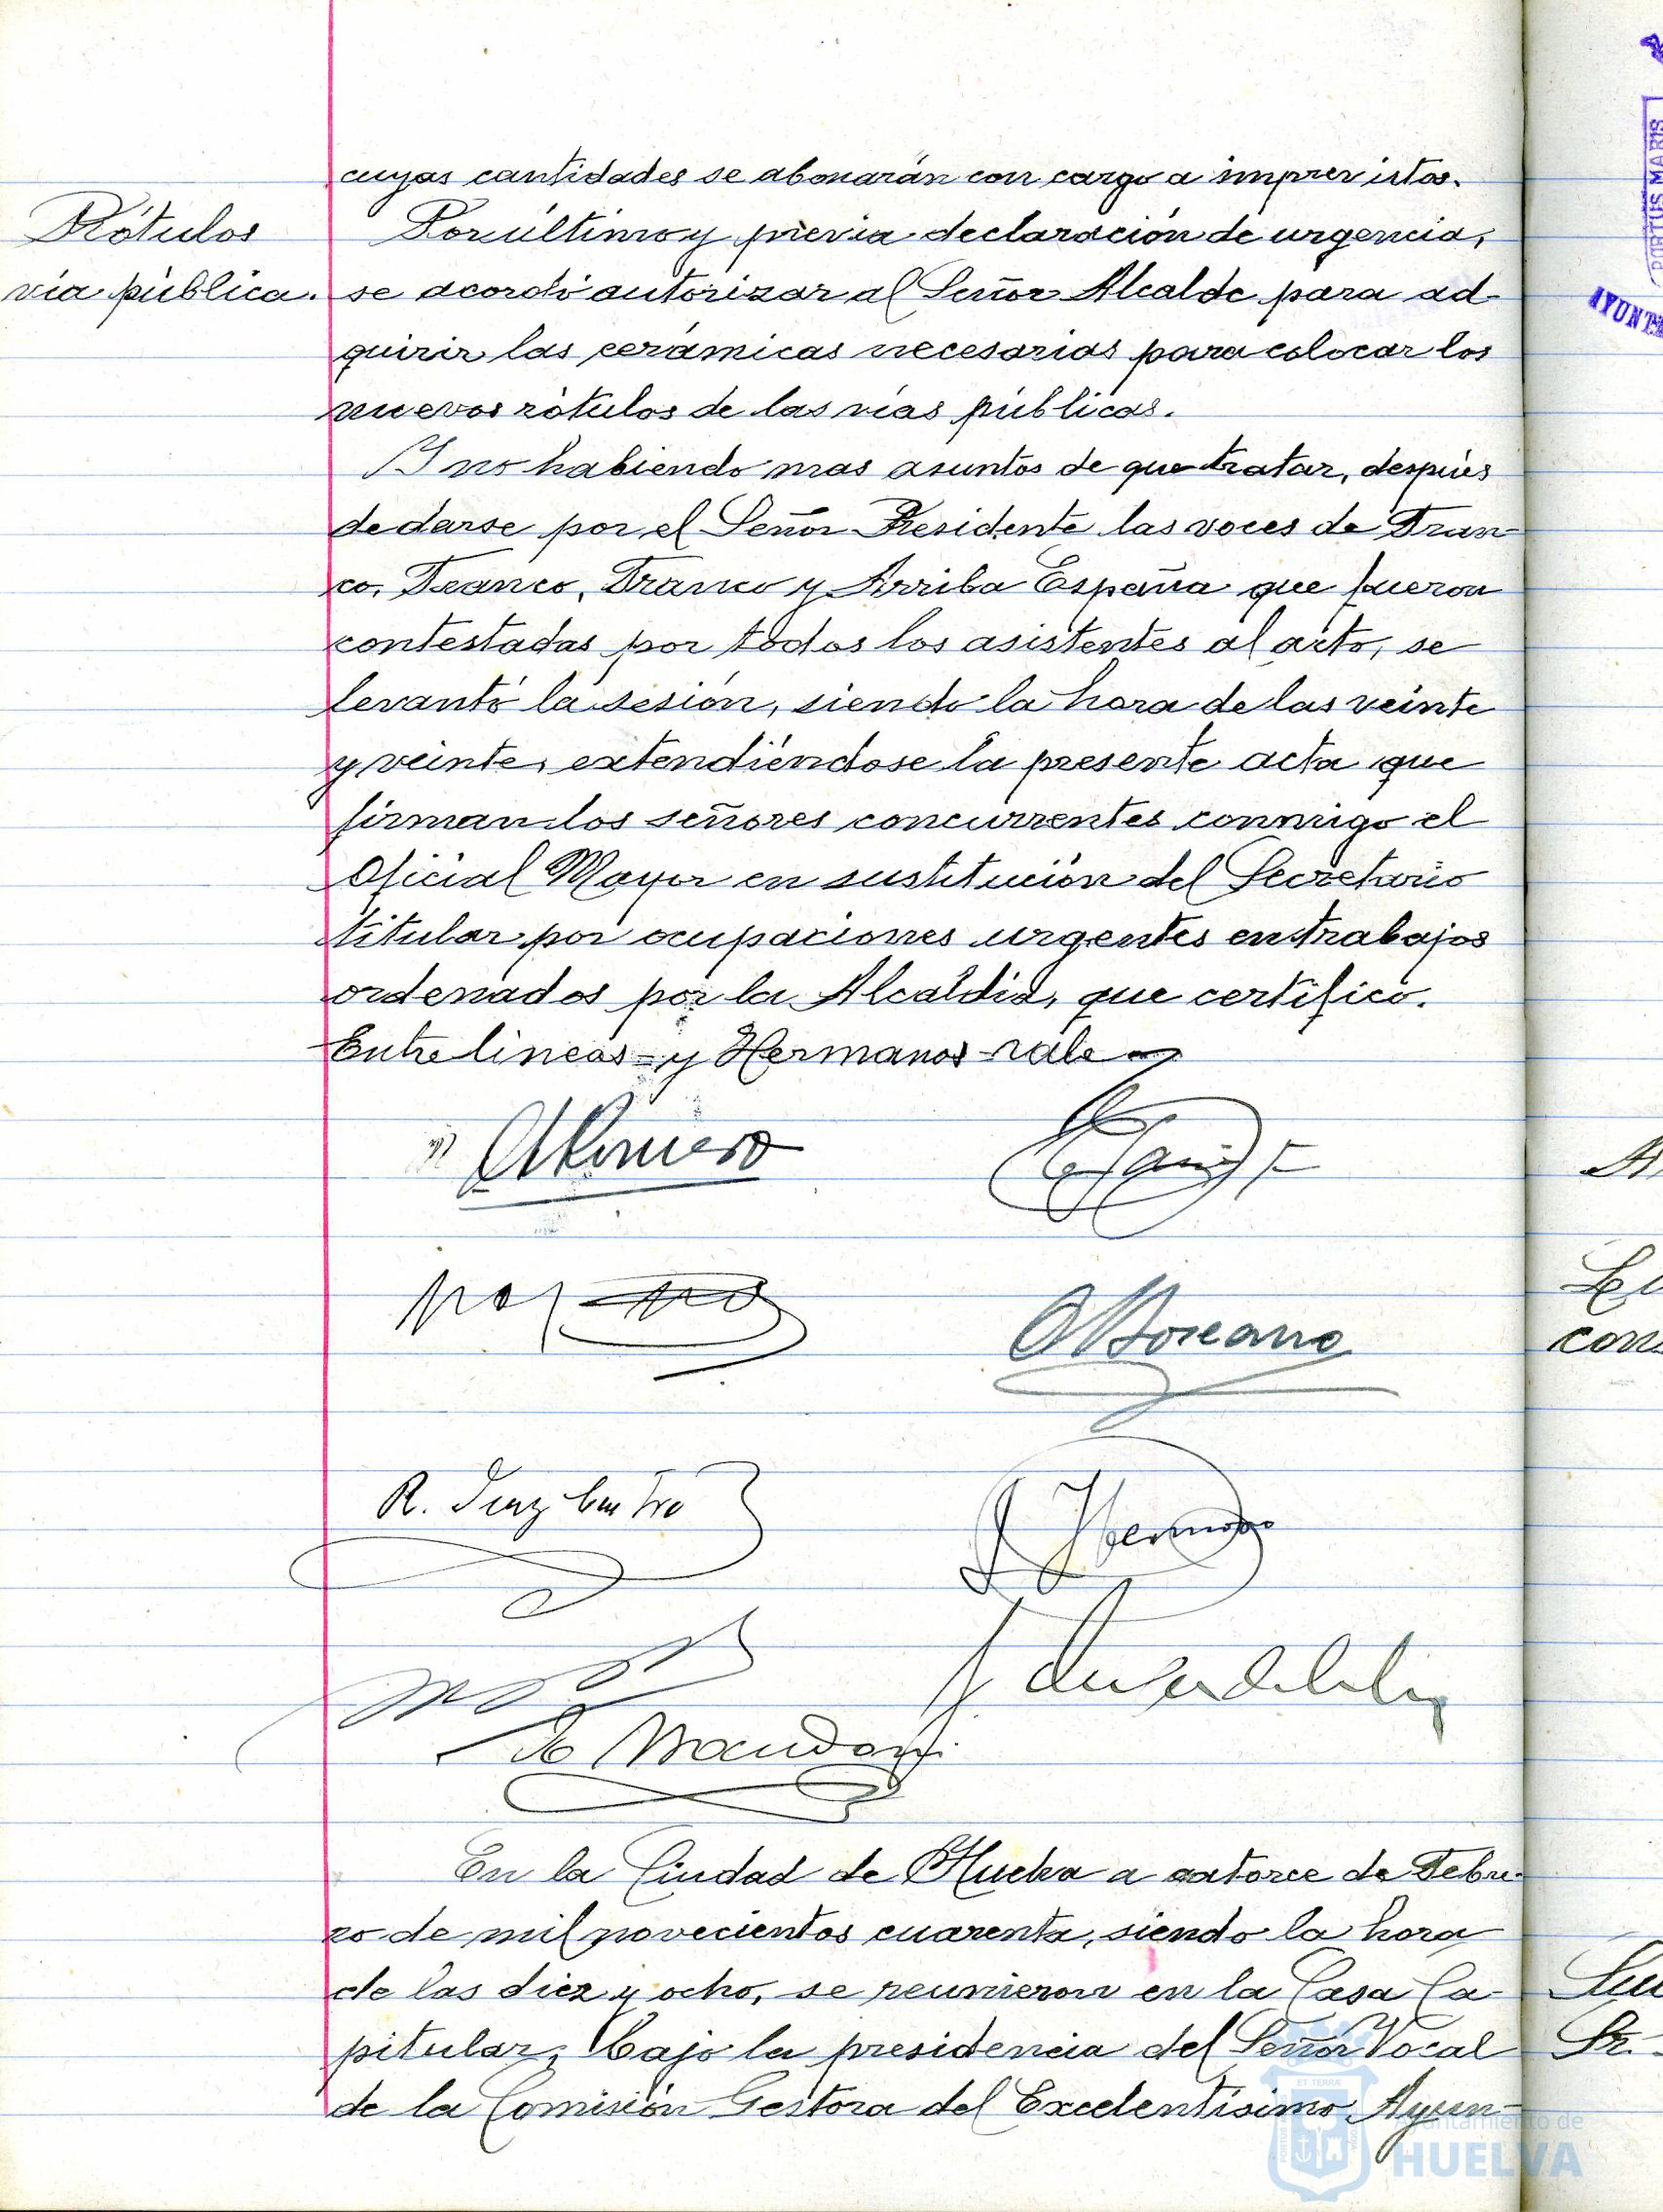 cuyas cantidades se abonarán con cargo a imprevistos.
Rótulos
vía pública.
Por último y previa declaración de urgencia,
se acordó autorizar al Señor Alcalde para ad-
quirir las cerámicas necesarias para colocar los
nuevos rótulos de las vías públicas.
Y no habiendo mas asuntos de que tratar, despúes
de darse por el Señor Presidente las voces de Fran-
co, Franco, Franco y Arriba España que fueron
contestadas por todos los asistentes al acto, se
levantó la sesión, siendo la hora de las veinte
y veinte, extendiéndose la presente acta que
firman los señores concurrentes conmigo el
Oficial Mayor en sustitución del Secretario
titular por ocupaciones urgentes en trabajos
ordenados por la Alcaldía, que certifico.
Entre lineas = y Hermanos = vale =
Romero
R. Diaz
de Mandoni
En la Ciudad de Huelva a catorce de Febre-
ro de mil novecientos cuarenta, siendo la hora
de las diez y ocho, se reunieron en la Casa Ca-
pitular, bajo la presidencia del Señor Vocal
de la Comisión Gestora del Excelentísimo Ayun-
PORTUS MARIS
AYUNT
Ayuntamiento de
HUELVA